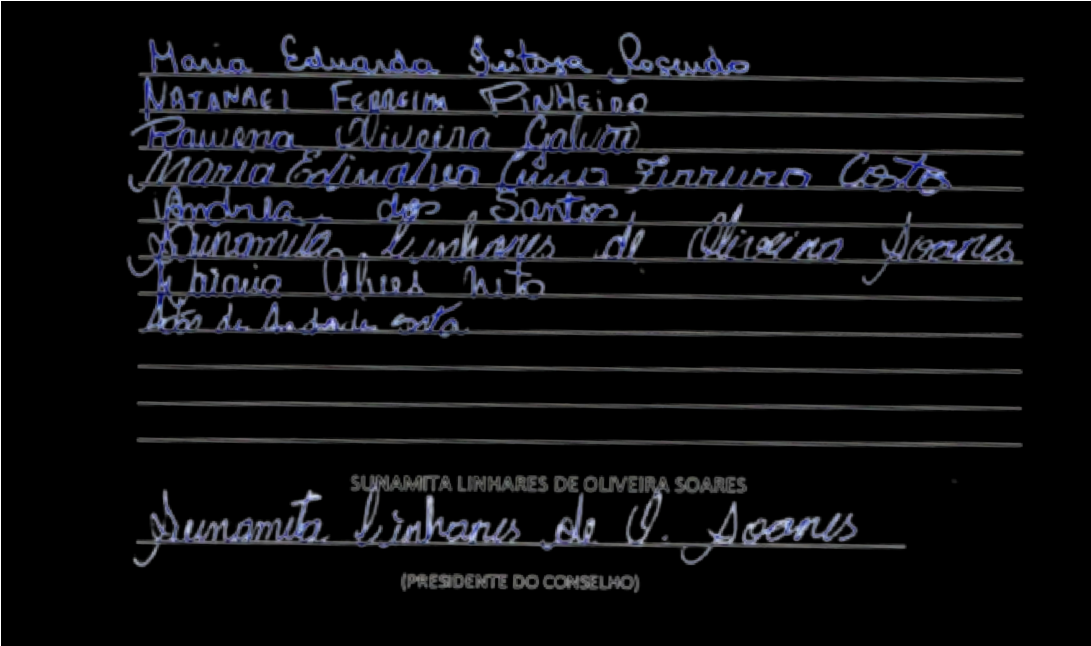 Maria Eduarda Feitoza Rosendo
NATANAEL FERREIRA PINHEIRO
Rawena Oliveira Galvão
Maria Edinalva Ferreira Costa
Andrea dos Santos
Sunamita Linhares de Oliveira Soares
Alves Neto
de Andrade Costa
SUNAMITA LINHARES DE OLIVEIRA SOARES
Sunamita Linhares de O. Soares
(PRESIDENTE DO CONSELHO)